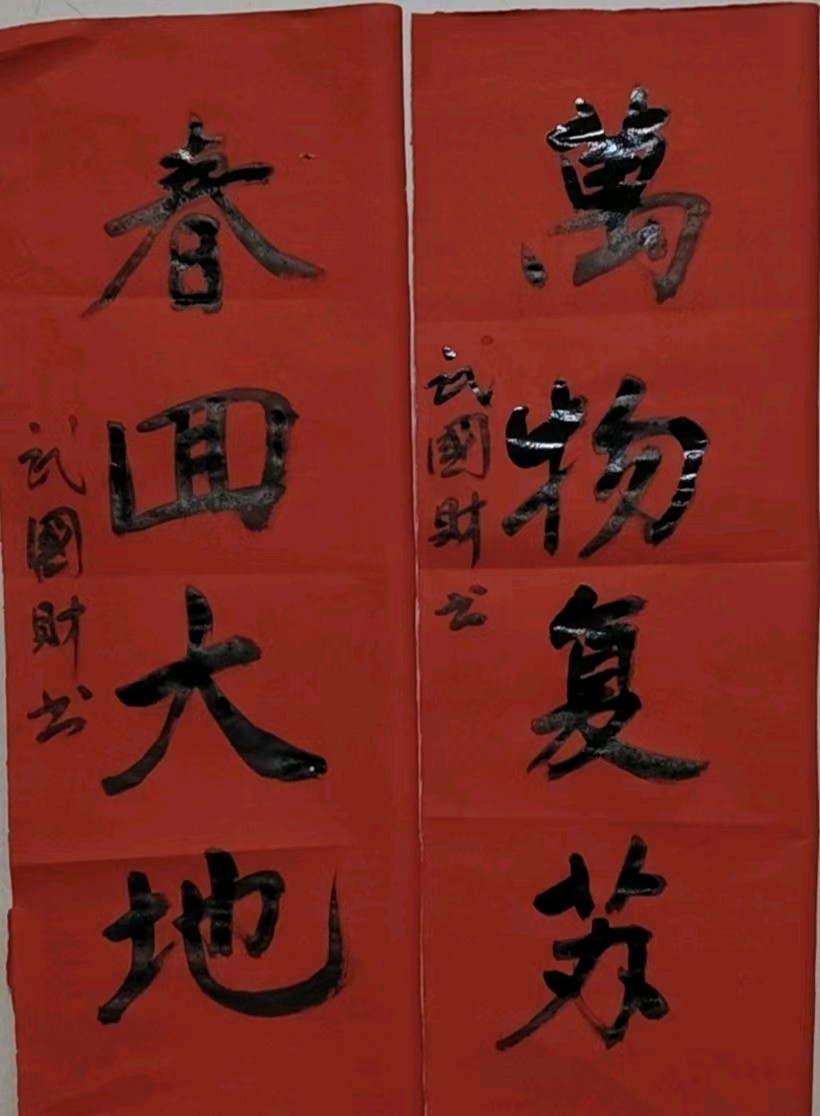 萬物复苏
武國財书
春回大地
武國財书